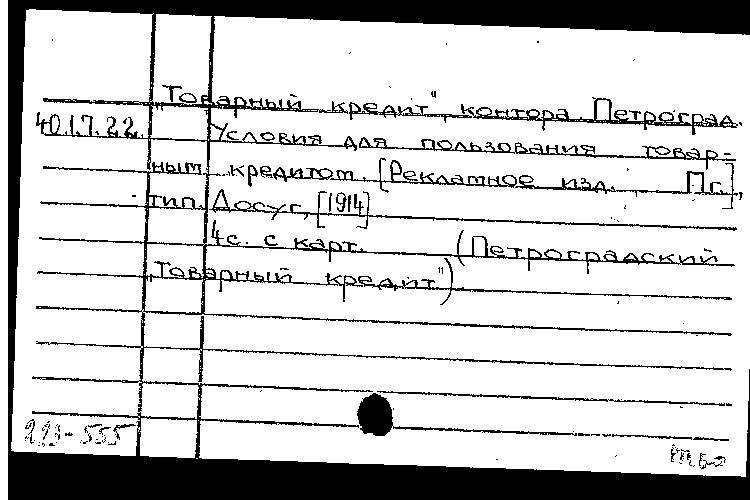 "Товарный кредит", контора. Петроград.
40.1.7.22. Условия для пользования товар-
ным кредитом. [Рекламное изд., Пг.],
тип. Досуг, [1914]
4с. с карт. (Петроградский
"Товарный кредит").
223-555